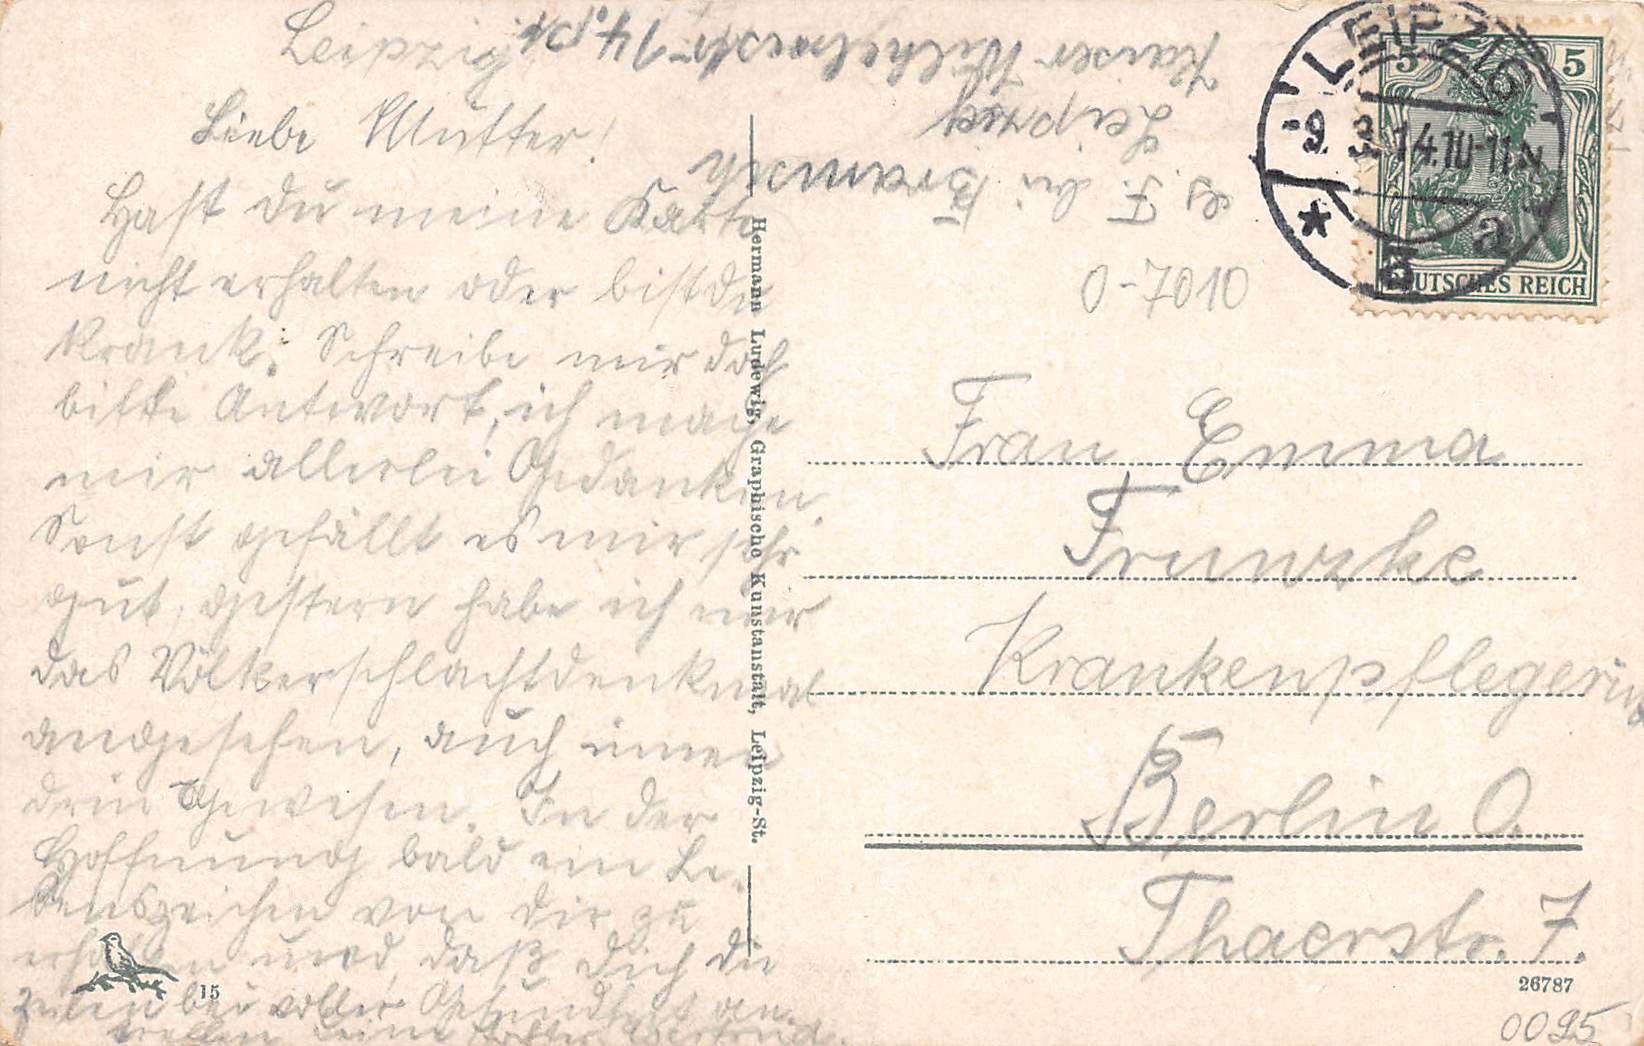 Leipzig
Liebe Mutter!
Hast du meine Karte
nicht erhalten oder bist du
krank. Schreibe mir doch
bitte Antwort, ich mache
mir allerlei Gedanken.
Sonst gefällt es mir sehr
gut, gestern habe ich mir
das Völkerschlachtdenkmal
angesehen, auch innen
drin gewesen. In der
Hoffnung bald ein Le-
benszeichen von dir zu
erhalten und, daß dich die
Zeilen bei voller Gesundheit an-
treffen deine
Kaiser Wilhelmstr. 14
Leipzig
bei Bramsch
0-7010
LEIPZIG
-9. 3. 14. 10-11 N.
* 5 a
5 5
DEUTSCHES REICH
Hermann Ludewig, Graphische Kunstanstalt, Leipzig-St.
Frau Emma
Frunzke
Krankenpflegerin
Berlin O.
Thaerstr. 7.
15
26787
0095